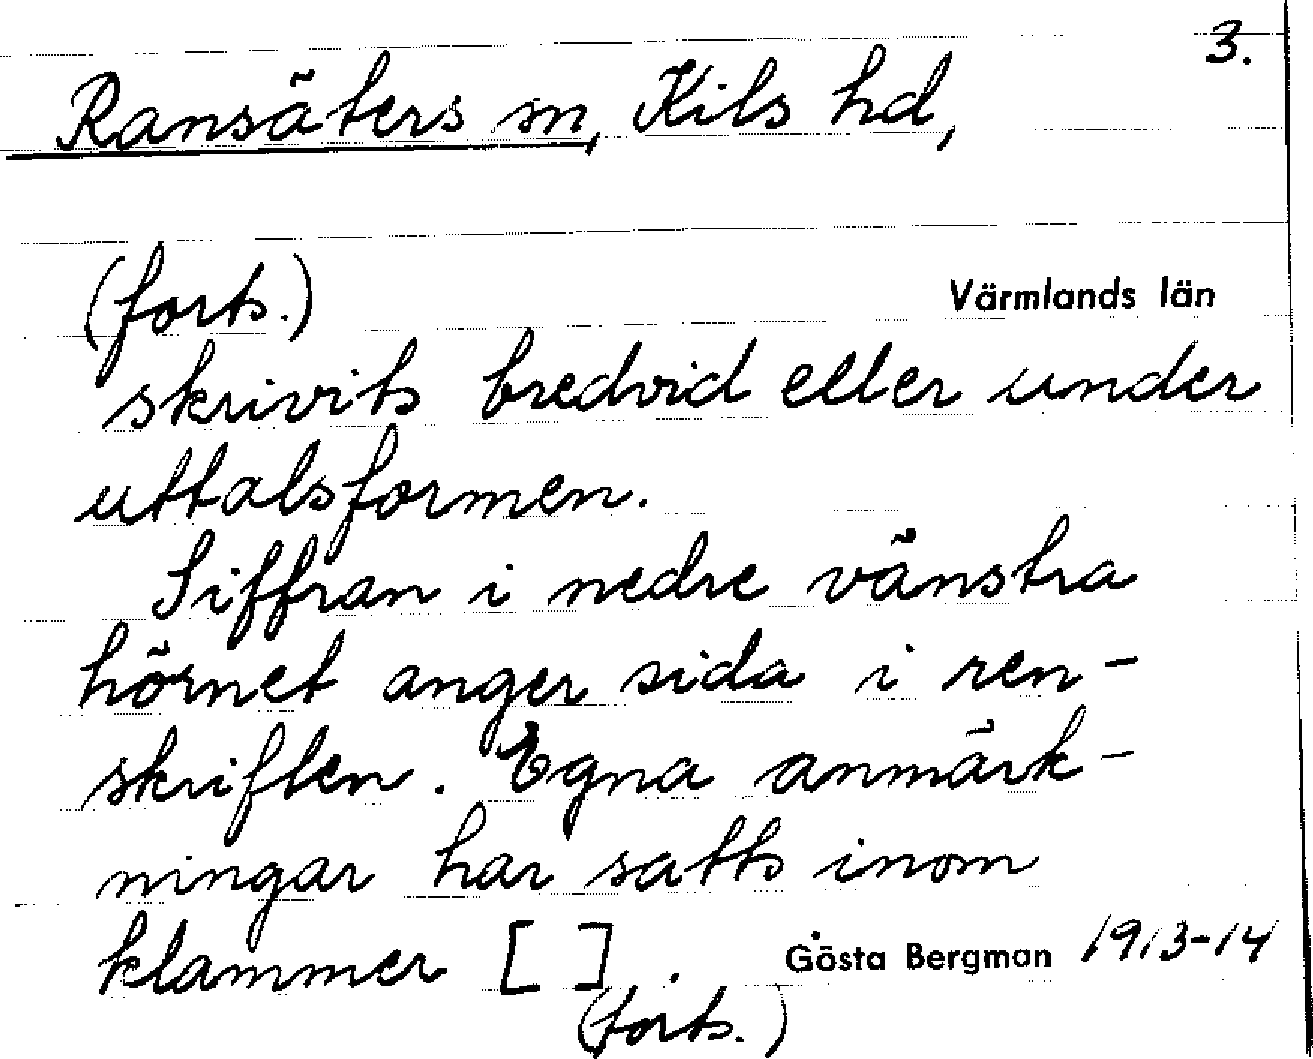 3.
Ransäters sn, Kils hd,
(forts.)
Värmlands län
skrivits bredvid eller under
uttalsformen.
Siffran i nedre vänstra
hörnet anger sida i ren-
skriften. Egna anmärk-
ningar har satts inom
klammer [ ] .
Gösta Bergman 1913-14
(forts.)